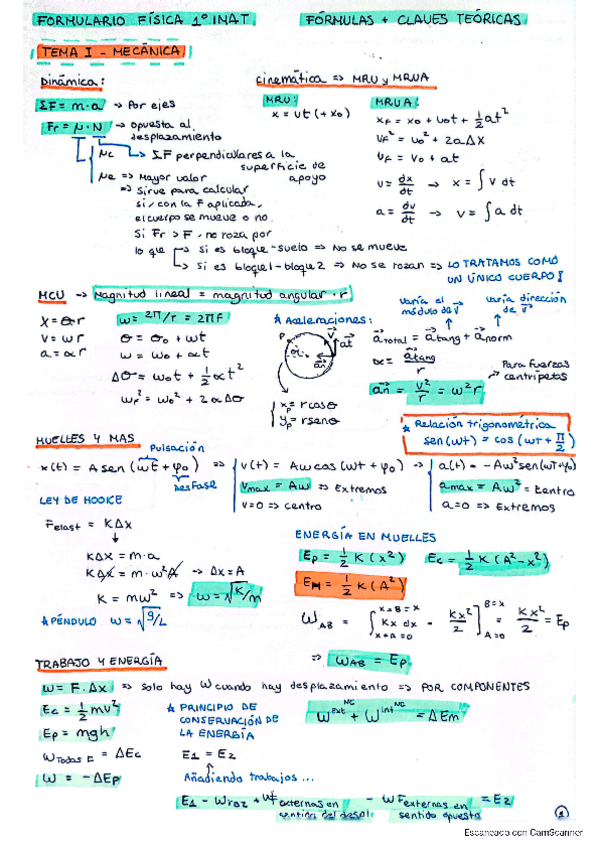 FORMULARIO FÍSICA 1º IMAT
FÓRMULAS + CLAVES TEÓRICAS
TEMA I - MECÁNICA
Dinámica:
ΣF = m·a → Por ejes
Fr = μ·N → opuesta al
desplazamiento
μc → ΣF perpendiculares a la
superficie de
apoyo
μe ⇒ Mayor valor
⇒ Sirve para calcular
si, con la F aplicada,
el cuerpo se mueve o no.
Si Fr > F, no roza por
lo que → Si es bloque-suelo ⇒ No se mueve
→ Si es bloque1-bloque2 ⇒ No se rozan ⇒ LO TRATAMOS COMO
UN ÚNICO CUERPO!
Cinemática ⇒ MRU y MRUA
MRU:
x = vt (+ x₀)
MRUA:
x_F = x₀ + v₀t + 1/2 at²
v_F² = v₀² + 2aΔx
v_F = v₀ + at
v = dx/dt → x = ∫ v dt
a = dv/dt → v = ∫ a dt
MCU → Magnitud lineal = magnitud angular · r
X = θr
v = wr
a = αr
w = 2π/T = 2πf
θ = θ₀ + wt
w = w₀ + αt
Δθ = w₀t + 1/2 αt²
w_F² = w₀² + 2αΔθ
★ Aceleraciones:
P
v
at
an
x_p = r cosθ
y_p = r senθ
Varía el
módulo de v
varía dirección
de v
a_total = a_tang + a_norm
α = a_tang / r
Para fuerzas
centrípetas
an = v²/r = w²r
★ Relación trigonométrica
sen(wt) = cos(wt + π/2)
MUELLES Y MAS
Pulsación
x(t) = A sen (wt + φ₀) ⇒
Desfase
v(t) = Aw cos (wt + φ₀) ⇒
vmax = Aw ⇒ Extremos
v = 0 ⇒ Centro
a(t) = -Aw² sen(wt+φ₀)
amax = Aw² = Centro
a = 0 ⇒ Extremos
LEY DE HOOKE
F_elast = KΔx
KΔx = m·a
KΔx = m·w²A → Δx = A
K = mw² ⇒ w = √K/m
★ PÉNDULO w = √g/L
ENERGÍA EN MUELLES
Ep = 1/2 K (x²)
Ec = 1/2 K (A² - x²)
E_M = 1/2 K (A²)
W_AB = ∫ Kx dx = Kx²/2 = Kx²/2 = Ep
x=B=x
x=A=0
B=x
A=0
⇒ W_AB = Ep
TRABAJO Y ENERGÍA
W = F·Δx ⇒ Solo hay W cuando hay desplazamiento ⇒ POR COMPONENTES
Ec = 1/2 mv²
Ep = mgh
W_Todas F = ΔEc
W = -ΔEp
★ PRINCIPIO DE
CONSERVACIÓN DE
LA ENERGÍA
E1 = E2
Añadiendo trabajos ...
W_Ext^NC + W_int^NC = ΔEm
E1 - W_roz + W_F externas en sentido del despl. - W_F externas en sentido opuesto = E2
1
Escaneado con CamScanner